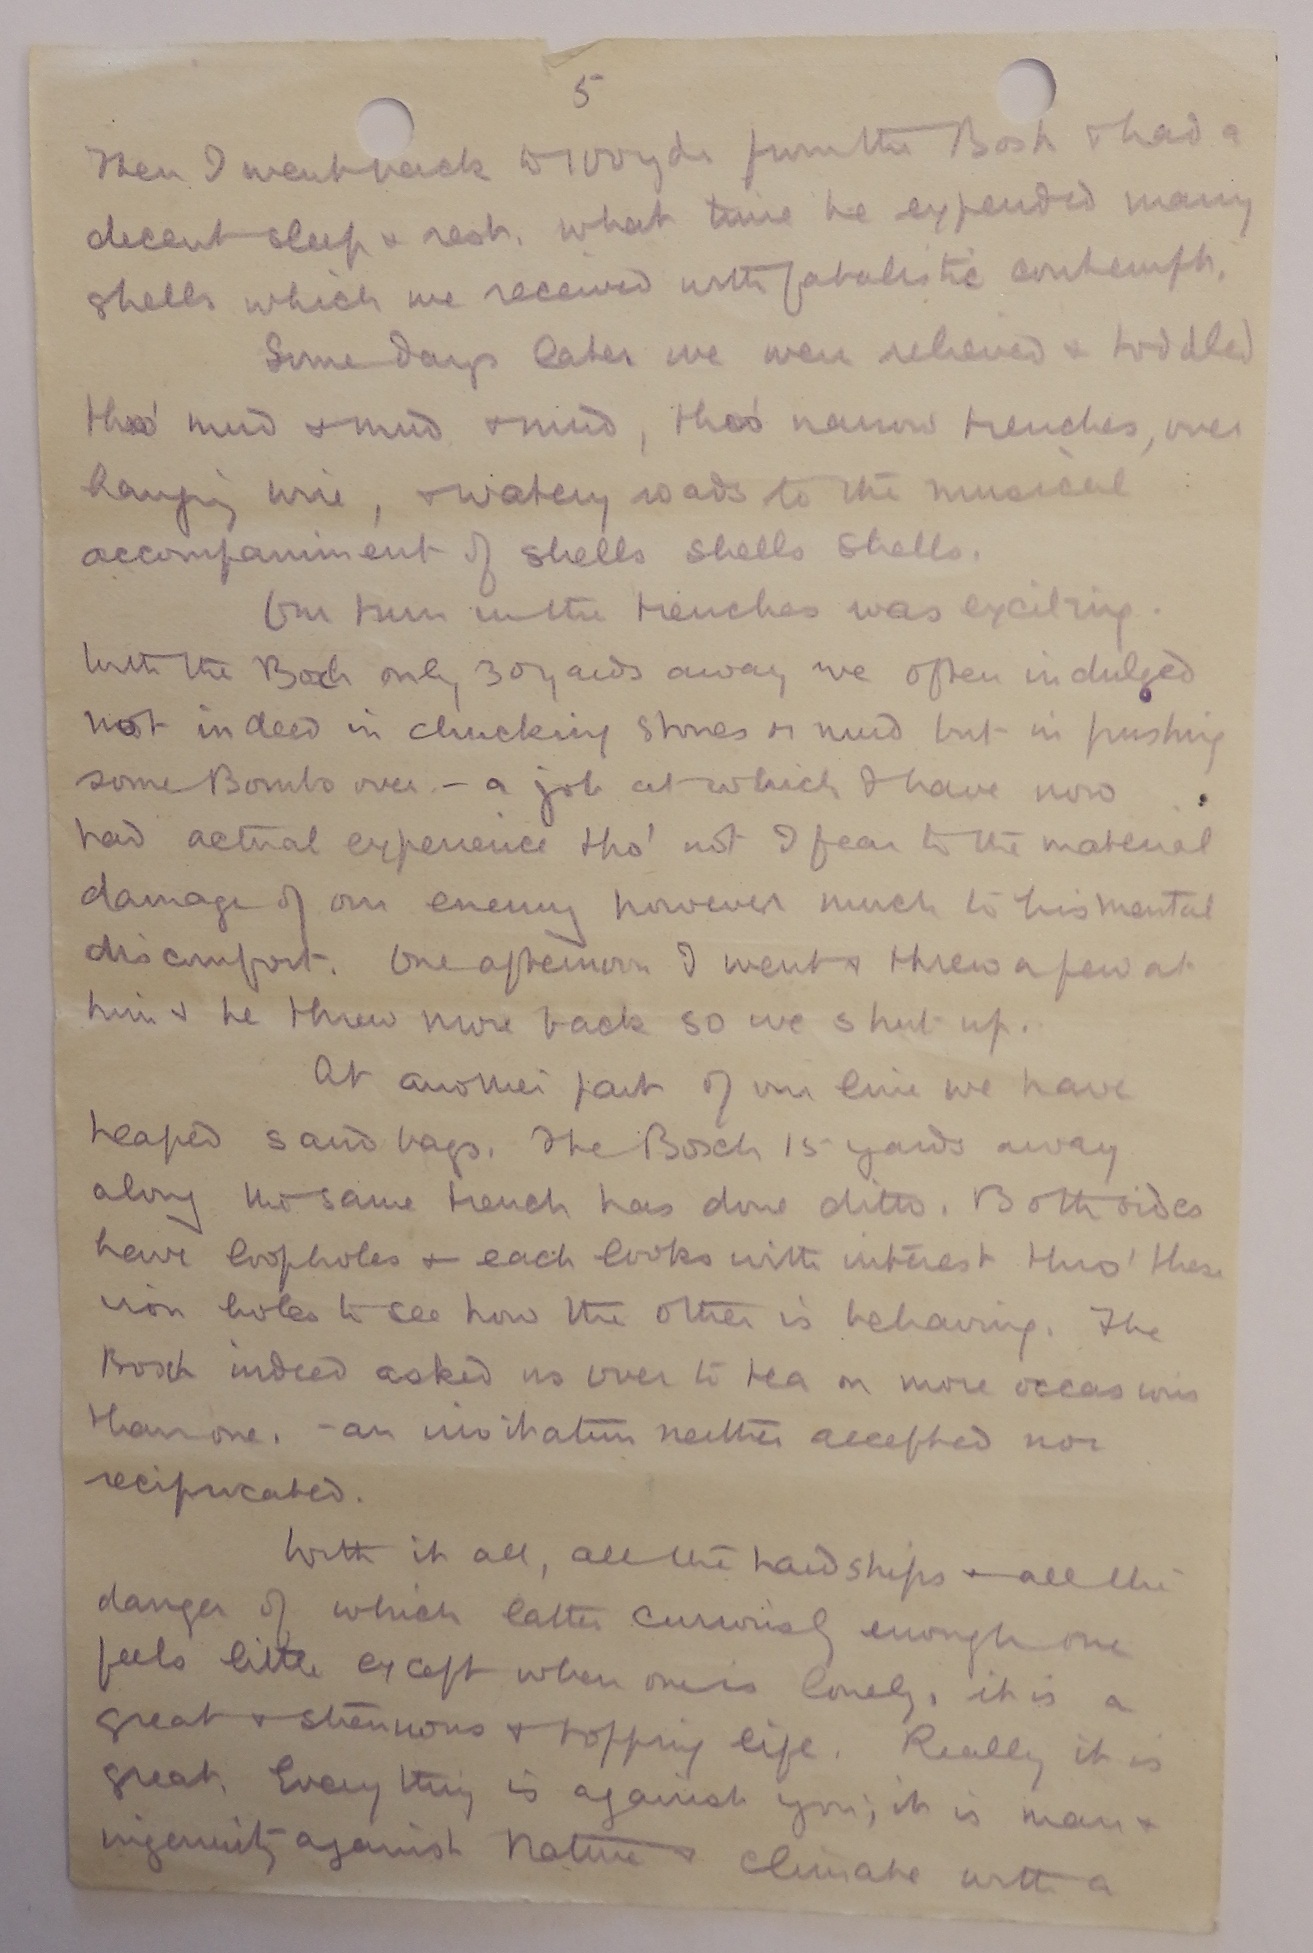 5
Then I went back to 100 yds from the Bosh & had a
decent sleep & rest. what time he expended many
shells which we received with fatalistic contempt.
Some days later we were relieved & toddled
thro' mud & mud & mud, thro' narrow trenches, over
hanging wire, & watery roads to the musical
accompaniment of shells shells shells.
Our turn in the trenches was exciting.
With the Boch only 30 yards away we often indulged
not indeed in chucking stones or mud but in pushing
some Bombs over - a job at which I have now
had actual experience tho' not I fear to the material
damage of our enemy however much to his mental
discomfort. One afternoon I went & threw a few at
him & he threw more back so we shut up.
At another part of our line we have
heaped sand bags. The Bosch 15 yards away
along the same trench has done ditto. Both sides
have loopholes & each looks with interest thro' these
iron holes to see how the other is behaving. The
Bosch indeed asked us over to tea on more occasions
than one. - an invitation neither accepted nor
reciprocated.
With it all, all the hardships & all the
danger of which latter curiously enough one
feels little except when one is lonely, it is a
great & strenuous & topping life. Really it is
great. Everything is against you; it is man &
ingenuity against Nature & climate with a